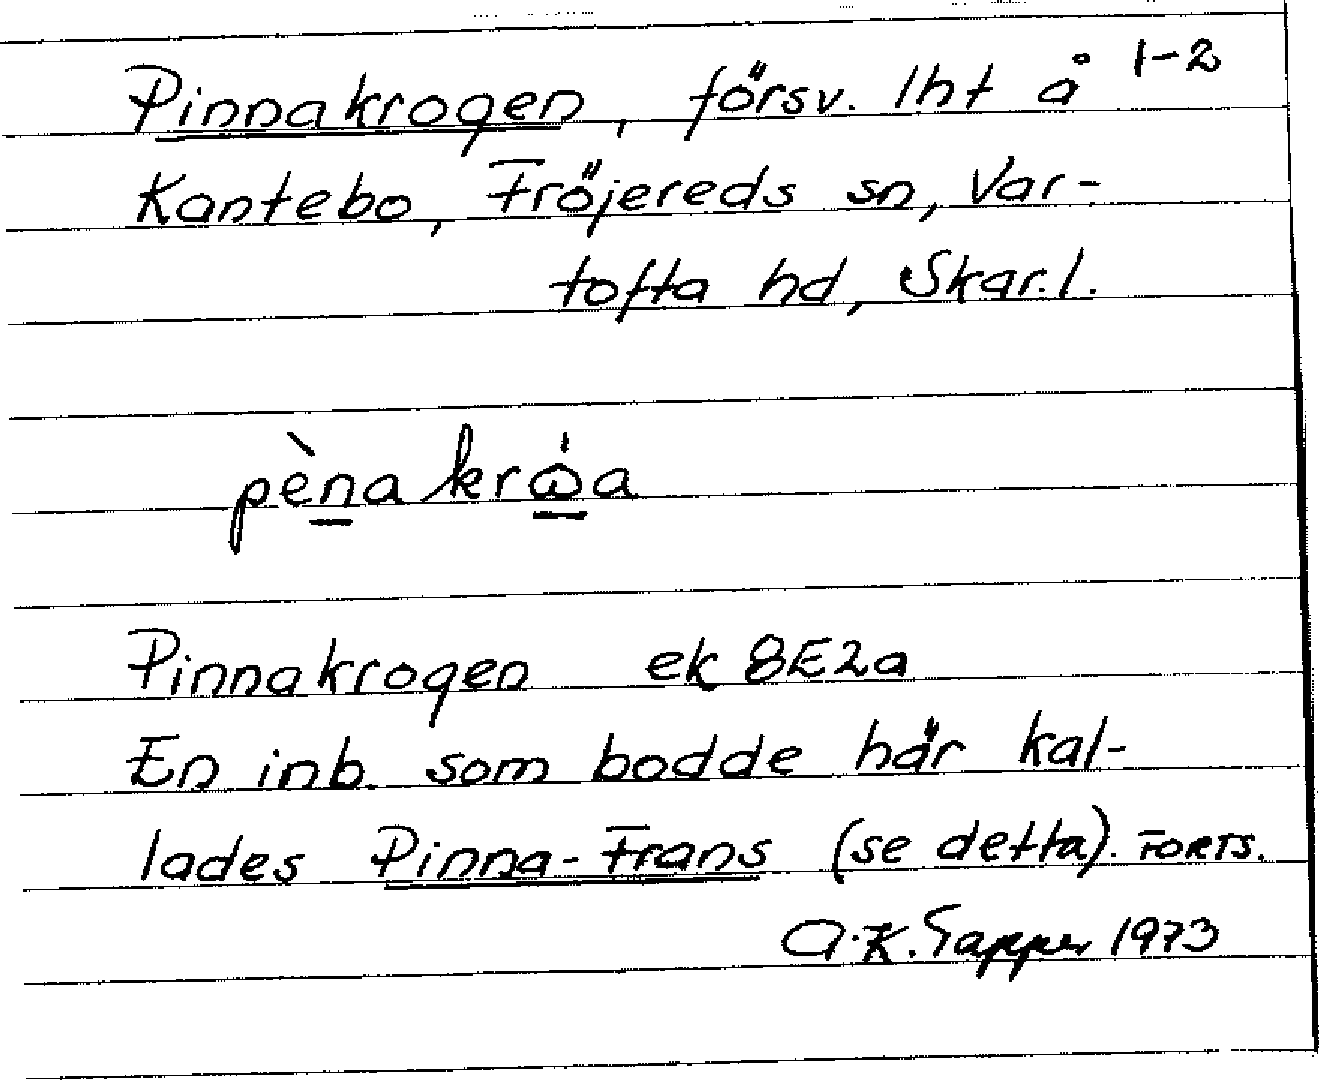 Pinnakrogen, försv. lht å 1-2
Kantebo, Fröjereds sn, Var-
tofta hd, Skar.l.
pènakrɷ̇a
Pinnakrogen ek 8E2a
En inb. som bodde här kal-
lades Pinna-Frans (se detta). FORTS.
A.K. Tapper 1973